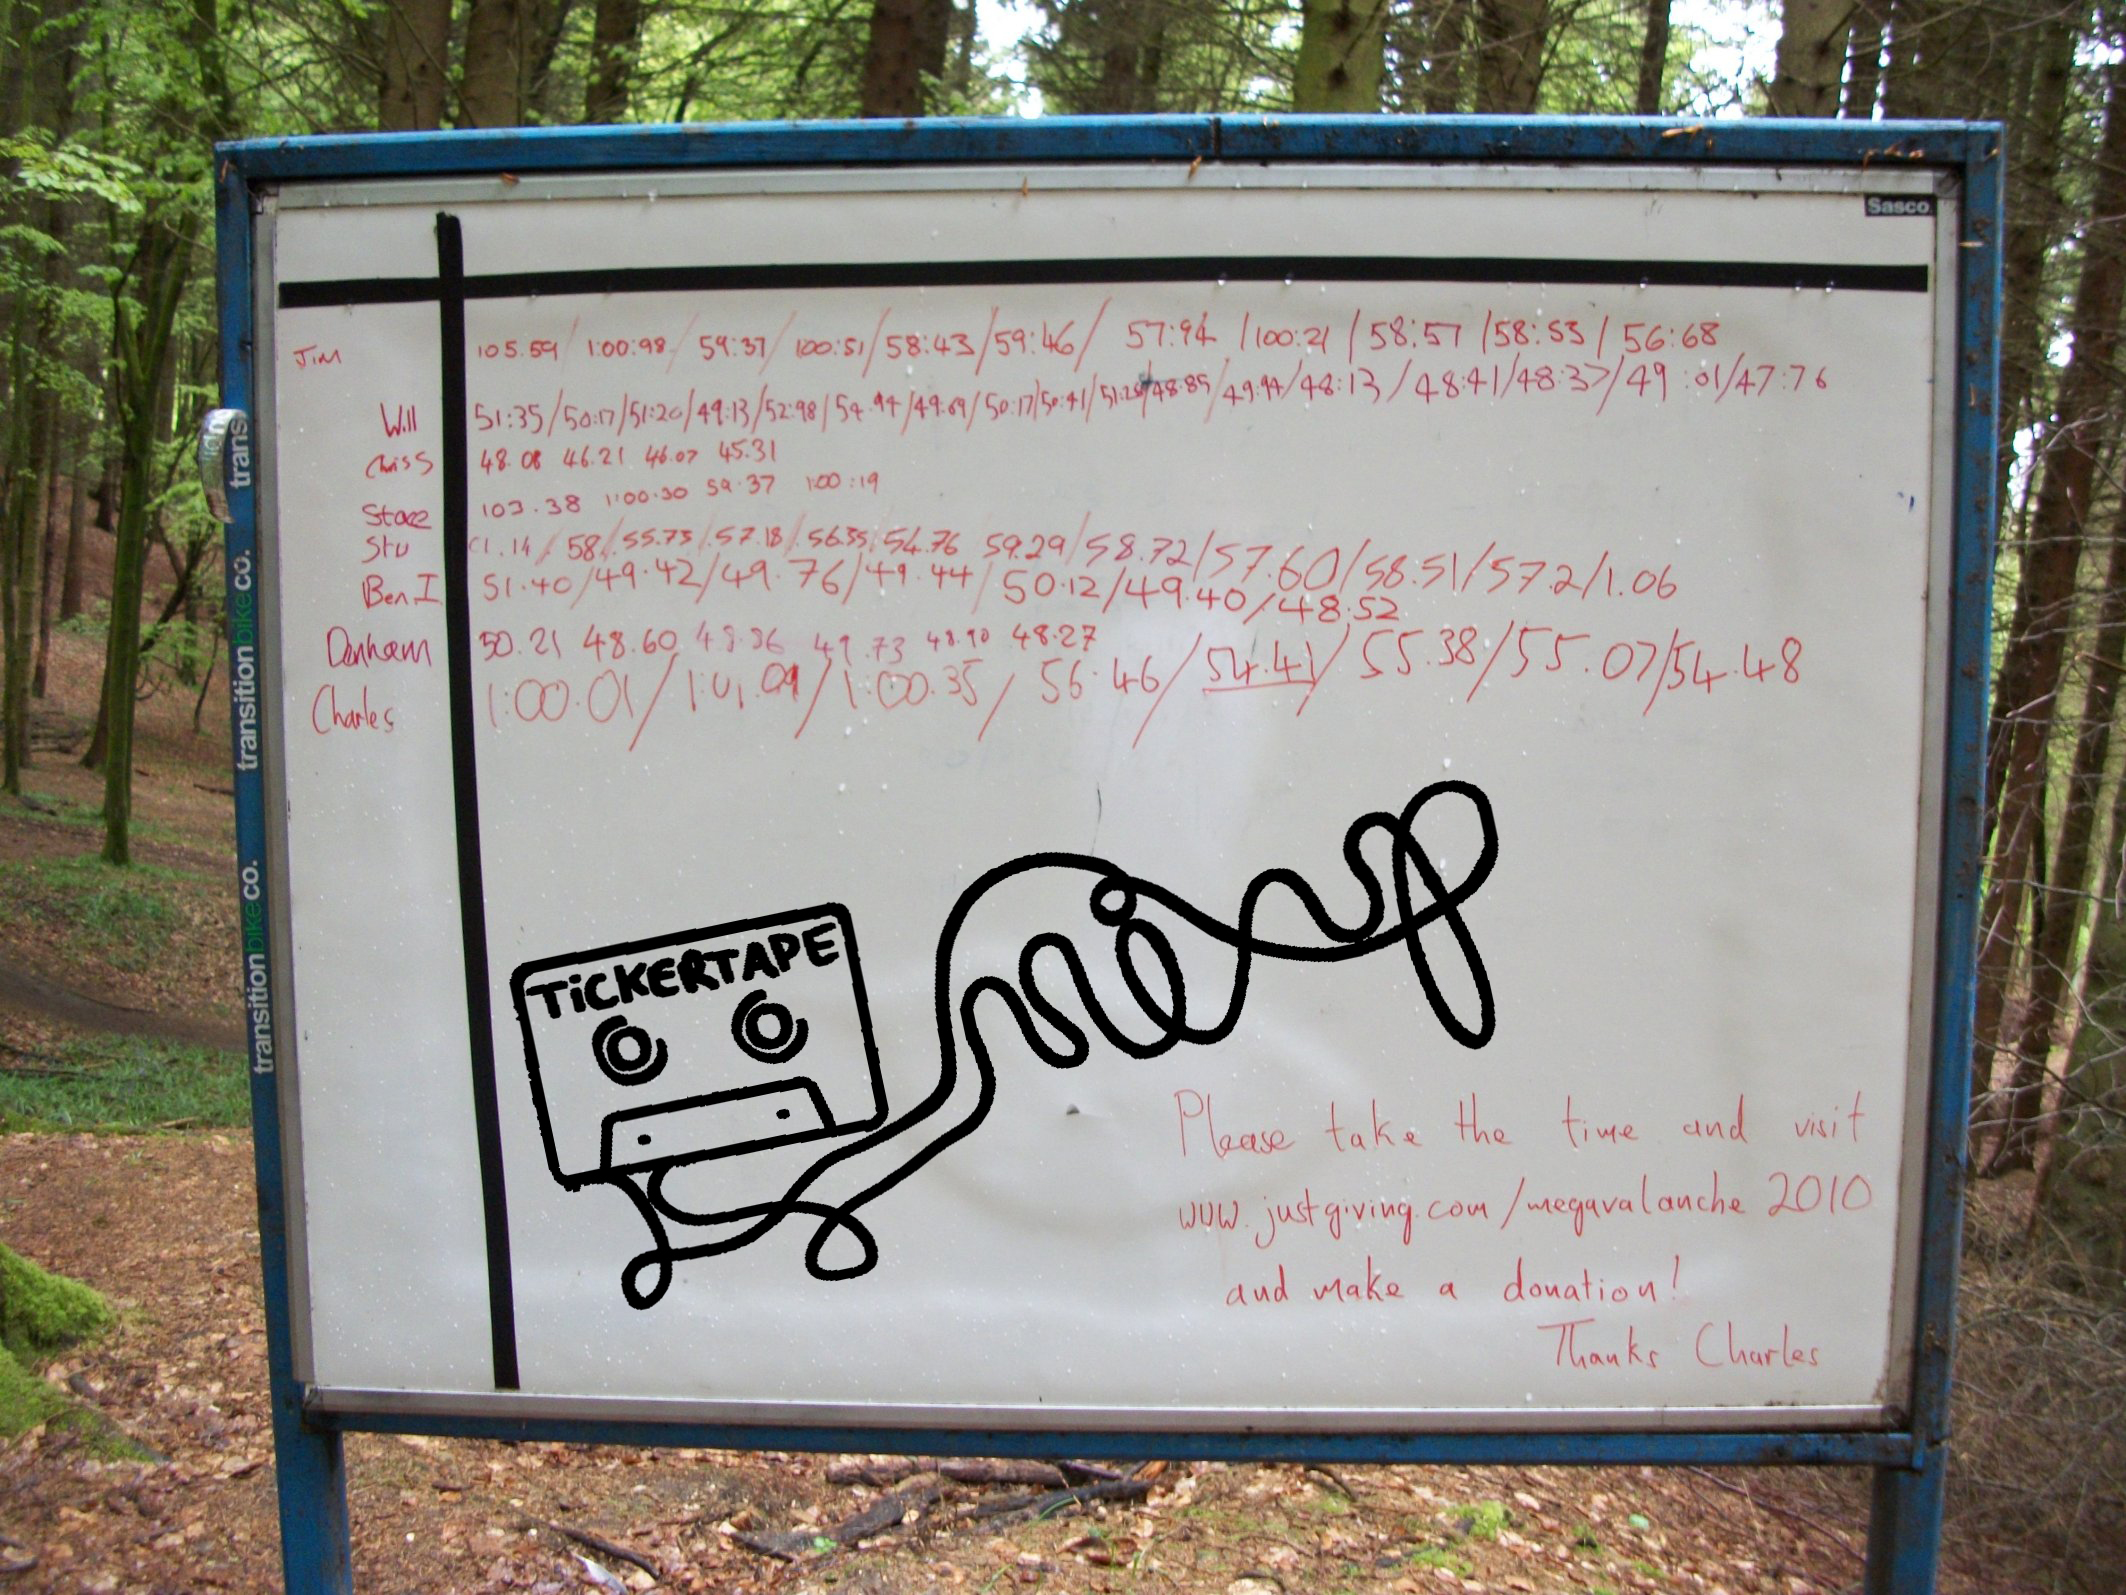 Sasco
Jim 105.59 / 1:00:98 / 59:37 / 100:51 / 58:43 / 59:46 / 57:94 / 100:21 / 58:57 / 58:53 / 56:68
Will 51:35 / 50:17 / 51:20 / 49:13 / 52:98 / 54.94 / 49:69 / 50:17 / 50:41 / 51:28 / 48.85 / 49:94 / 48:13 / 48:41 / 48:37 / 49:01 / 47:76
Chris S 48.08 46.21 46.07 45.31
103.38 1:00.30 59.37 1:00:19
Stu 58 / 55.73 / 57.18 / 56.35 / 54.76 59.29 / 58.72 / 57.60 / 58.51 / 57.2 / 1.06
Ben I 51.40 / 49.42 / 49.76 / 49.44 / 50.12 / 49.40 / 48.52
Danham 50.21 48.60 48.86 49.73 48.90 48.27
Charles 1:00.01 / 1:01.09 / 1:00.35 / 56.46 / 54.41 / 55.38 / 55.07 / 54.48
TiCKERTAPE
Please take the time and visit
www.justgiving.com/megavalanche 2010
and make a donation!
Thanks Charles
trans
transition bike co.
transition bike co.